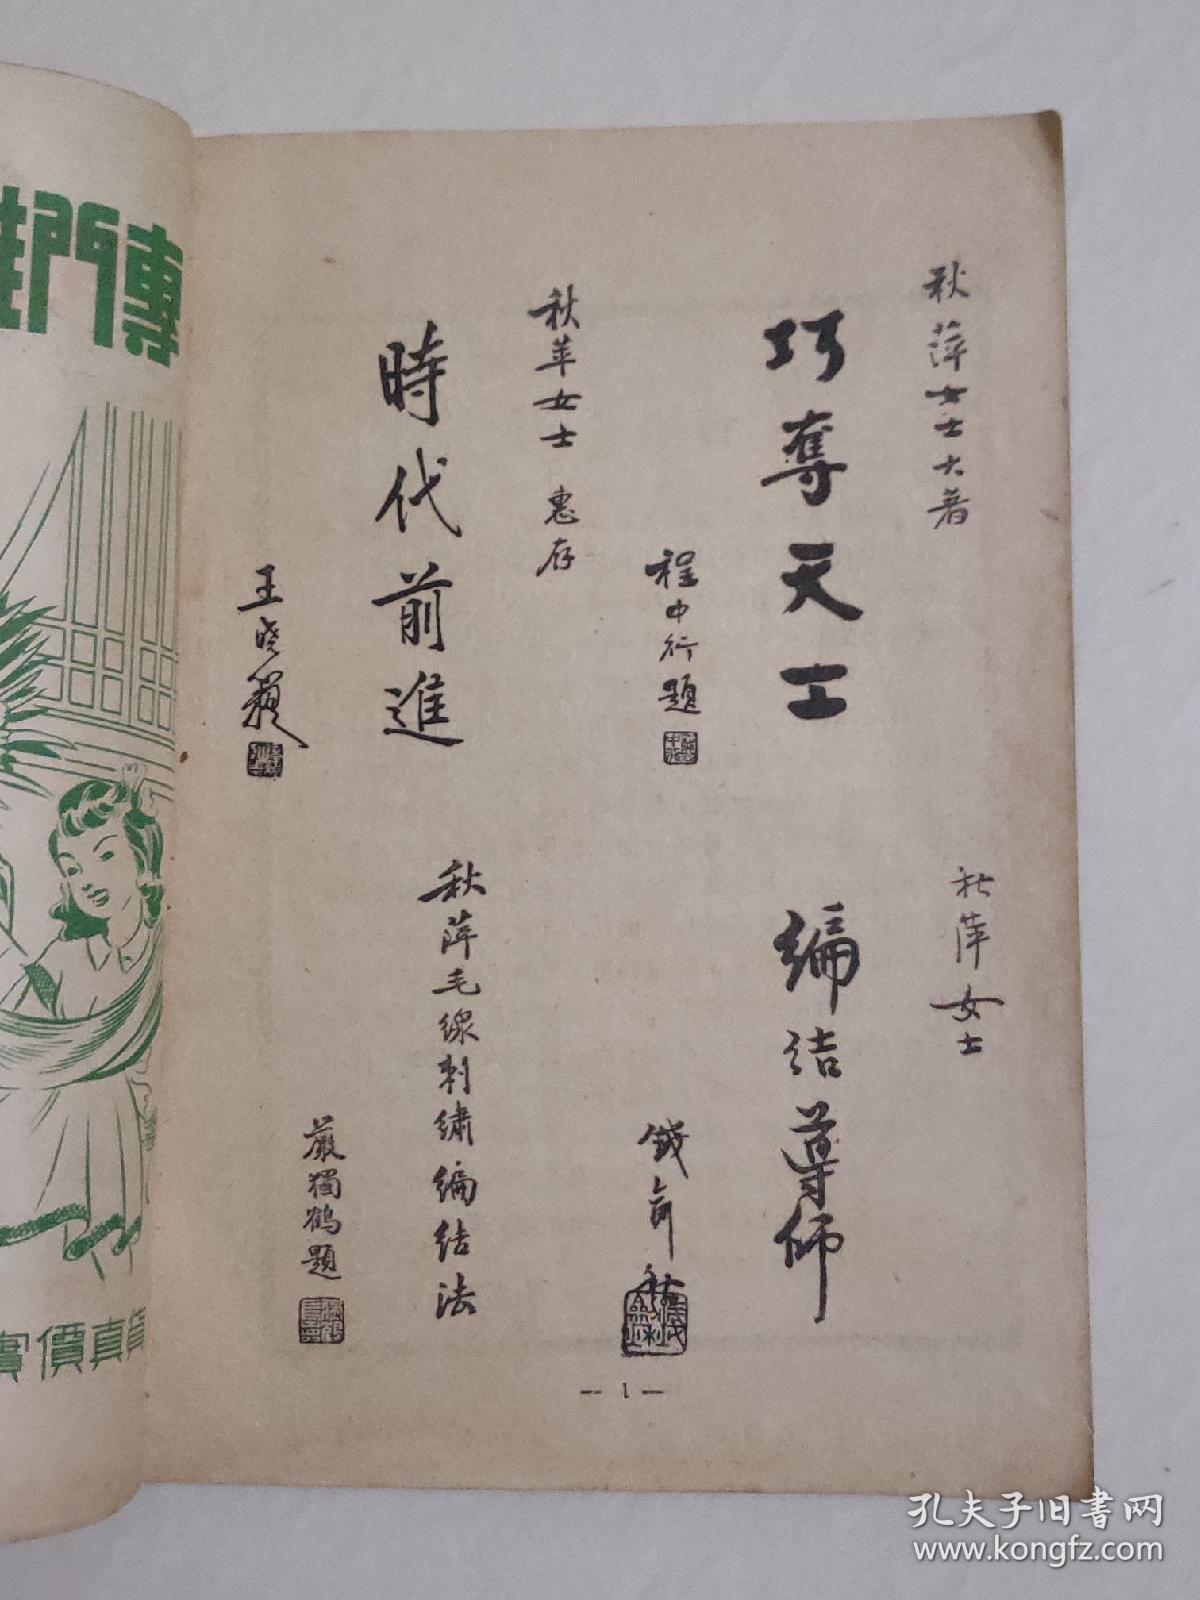 秋萍女士大著
巧奪天工
程中行題
秋苹女士 惠存
時代前進
王曉籟
秋萍女士
編結導師
秋萍毛線刺繡編結法
嚴獨鶴題
— 1 —
專門
價真
孔夫子旧书网
www.kongfz.com